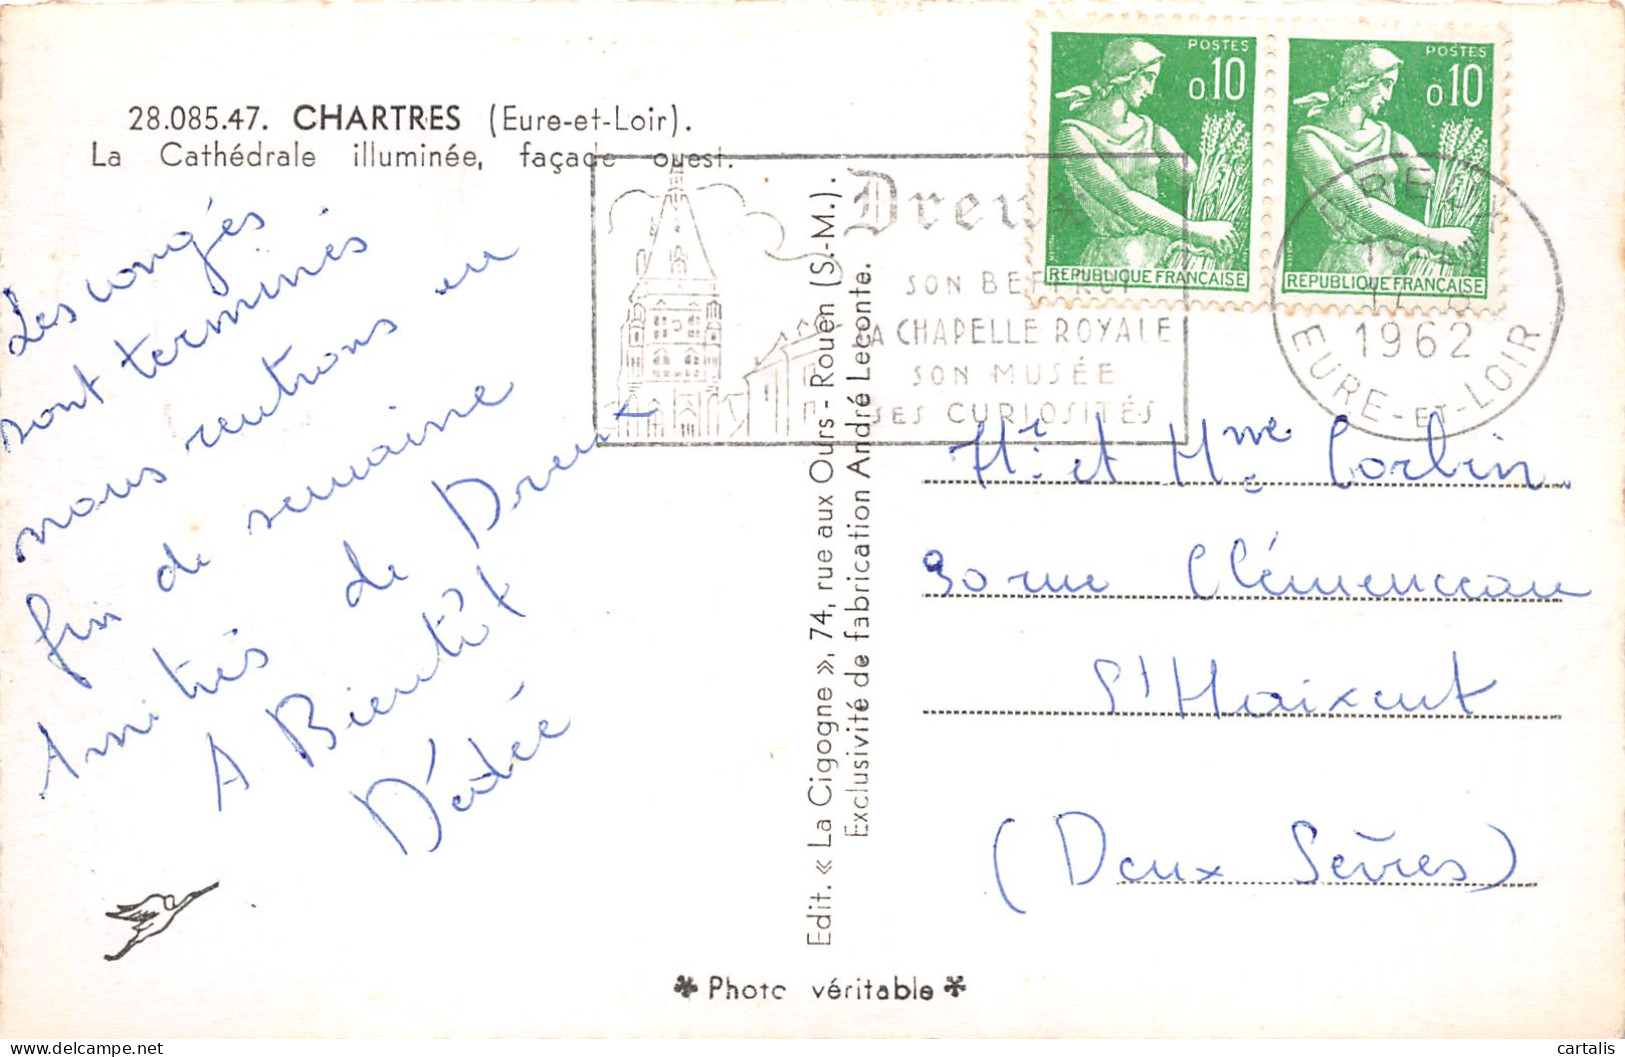 28.085.47. CHARTRES (Eure-et-Loir).
La Cathédrale illuminée, façade ouest.
Les congés
sont terminés
nous rentrons en
fin de semaine
Amitiés de Dreux
A Bientôt
Dédée
Edit. « La Cigogne », 74, rue aux Ours - Rouen (S.-M.).
Exclusivité de fabrication André Leconte.
✱ Photo véritable ✱
Dreux
SON BEFFROI
LA CHAPELLE ROYALE
SON MUSÉE
SES CURIOSITÉS
POSTES
0,10
REPUBLIQUE FRANÇAISE
POSTES
0,10
REPUBLIQUE FRANÇAISE
DREUX
1962
EURE-ET-LOIR
Mr et Mme Corbin
30 rue Clémenceau
St Maixent
(Deux Sèvres)
www.delcampe.net
cartalis